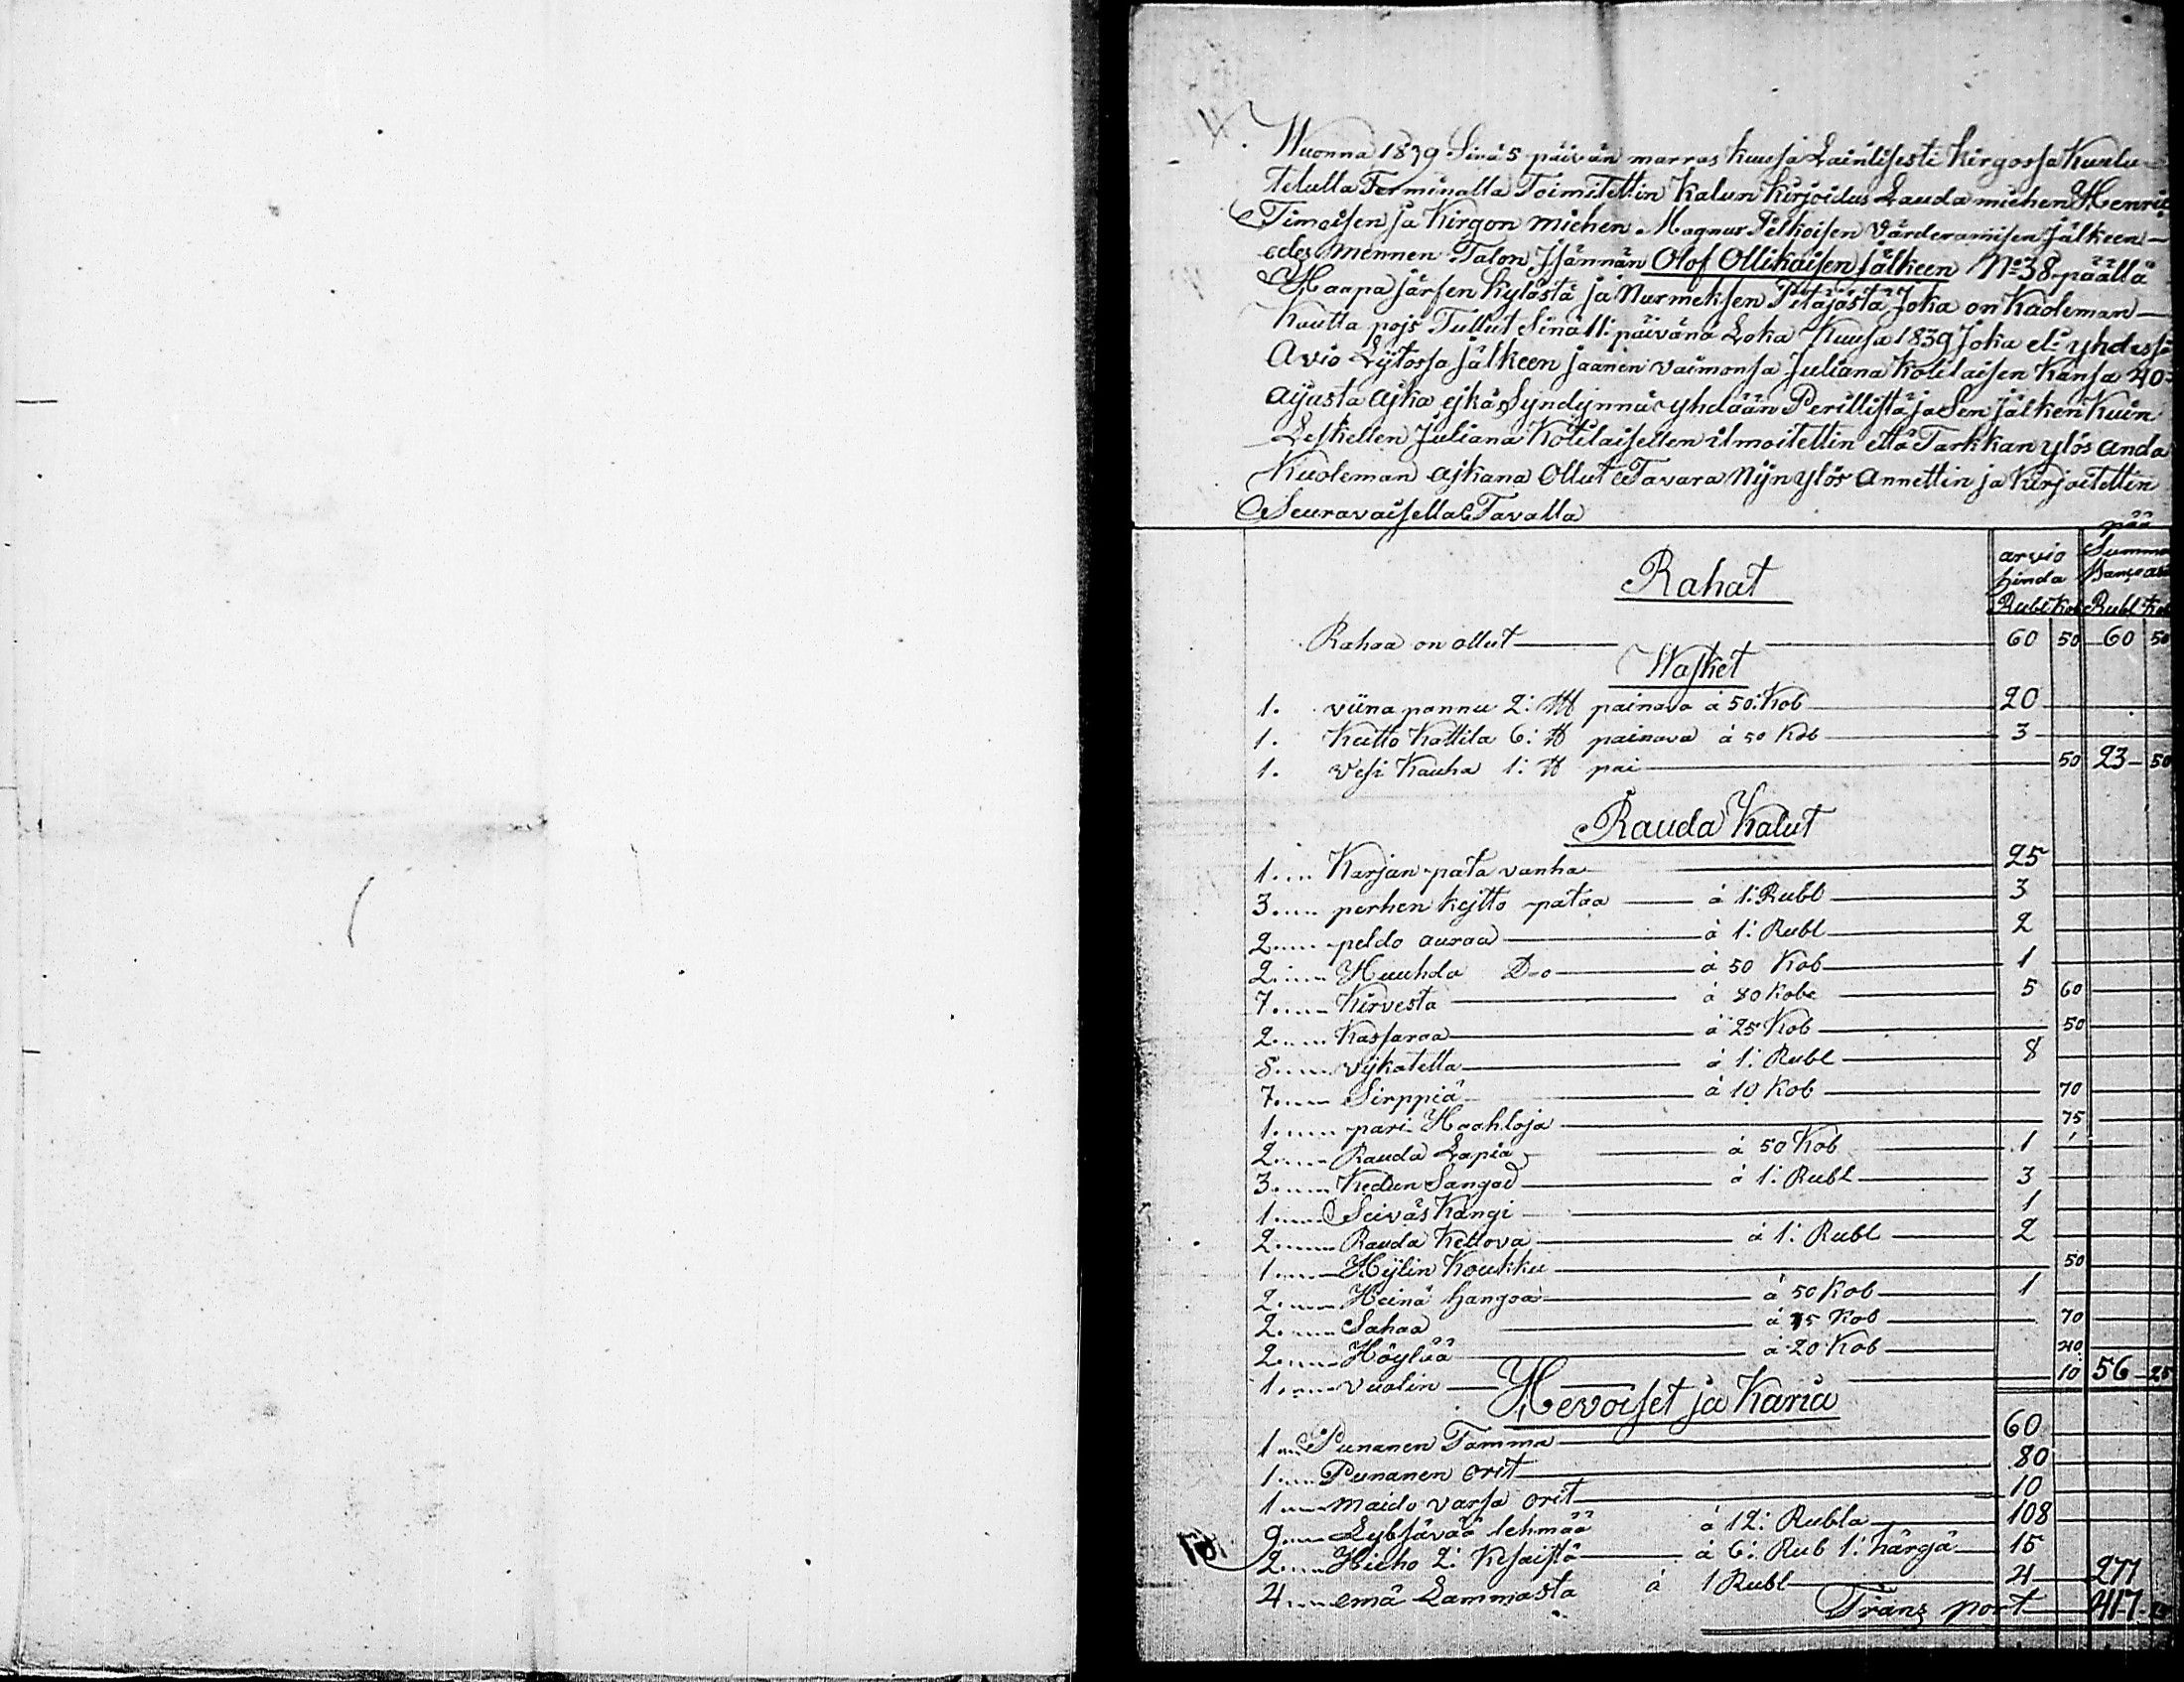 Wuonna 1839 Sinä 5 päivän marras kuusa Lainlisesti kirgossa Kuulu-
tetulla Terminalla Toimitettin Kalun Kirjoidus Lauda miehen Henric
Timoisen ja Kirgon miehen Magnus Pelkoisen Värderamisen Jälkeen -
edes Mennen Talon Isännän Olof Ollikaisen Jälkeen No 38 päällä
Haapa järfen Kylästä ja Nurmeksen Pitäjästä Joka on Kuoleman -
Kautta pojs Tullut Sinä 11: päivänä Loka Kuusa 1839 Joka eli yhdessä
Avio Lijtossa jälkeen jaänen vaimonsa Juliana Kotilaisen Kansa 40:
Ajjasta ajka ejkä Syndynnä yhdään Perillistä ja Sen jälken Kuin
Leskellen Juliana Kotilaisellen ilmoitettin että Tarkkan ylös anda
Kuoleman ajkana Ollut Tavara Nijn ylös Annettin ja Kirjoitettin
Seuravaisella Tavalla
pää
arvio Summa
hinda
Rubl Kob Rubl Kob
Rahat
Rahaa on ollut 60 50 60 50
Wasket
1. viina pannu 2: L℔ painava á 50: Kob 20
1. Keitto Kattila 6: ℔ painava á 50 Kob 3
1. Vesi Kauha 1: ℔ pai 50 23 50
Rauda Kalut
1.... Karjan pata vanha 25
3.... perhen kejtto pataa á 1: Rubl 3
2.... peldo auraa á 1: Rubl 2
2.... Huuhda D-o á 50 Kob 1
7.... Kirvesta á 80 Kobe 5 60
2.... Kassaraa á 25 Kob 50
8.... vijkatetta á 1: Rubl 8
7.... Sirppiä á 10 Kob 70
1.... pari Haahloja 75
2.... Rauda Lapia á 50 Kob 1
3.... Kedun Sangad á 1: Rubl 3
1.... Seiväs Kangi 1
2.... Rauda Kettova á 1: Rubl 2
1.... Hijlin Koukku 50
2.... Heinä hangoa á 50 Kob 1
2.... Sahaa á 35 Kob 70
2.... Höylää á 20 Kob 40
1.... vuolin 10 56 25
Hevoiset ja Karia
1... Punanen Tamma 60
1... Punanen orit 80
1... maido varsa orit 10
9... Lybsävää lehmää á 12: Rubla 108
2... Hieho 2: Kesäistä á 6: Rub 1: härgä 15
4... emä Lammasta á 1 Rubl 4 277
Trans port 417